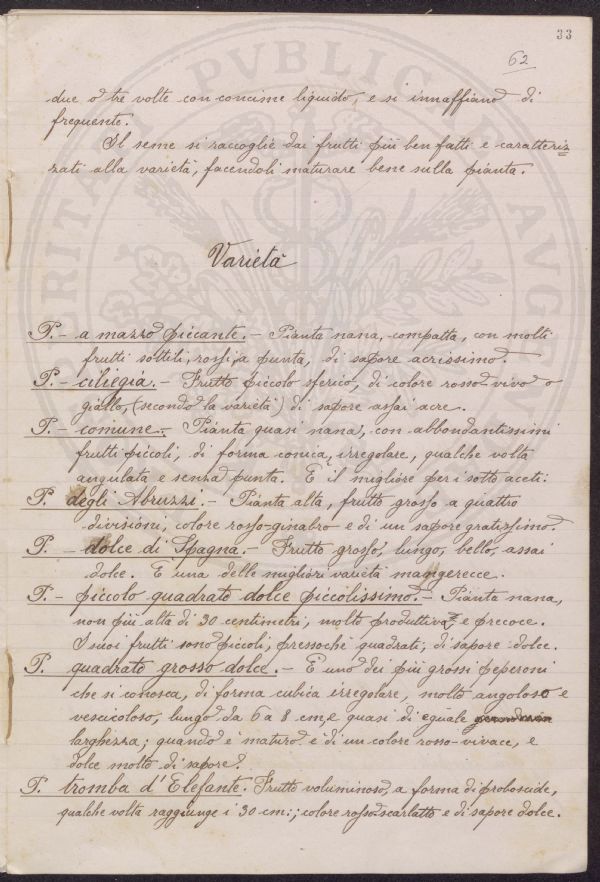 33
62
due o tre volte con concime liquido, e si innaffiano di
frequente.
Il seme si raccoglie dai frutti più ben fatti e caratteriz=
zati alla varietà, facendoli maturare bene sulla pianta.
Varietà
P. - a mazzo piccante. - Pianta nana, compatta, con molti
frutti sottili, rossi, a punta, di sapore acrissimo.
P. - ciliegia. - Frutto piccolo sferico, di colore rosso-vivo o
giallo, (secondo la varietà) di sapore assai acre.
P. - comune. - Pianta quasi nana, con abbondantissimi
frutti piccoli, di forma conica, irregolare, qualche volta
angulata e senza punta. È il migliore per i sotto aceti.
P. degli Abruzzi. - Pianta alta, frutto grosso a quattro
divisioni, colore rosso-ginabro e di un sapore gratissimo.
P. - dolce di Spagna. - Frutto grosso, lungo, bello, assai
dolce. È una delle migliori varietà mangerecce.
P. - piccolo quadrato dolce piccolissimo. - Pianta nana,
non più alta di 30 centimetri, molto produttiva, e precoce.
I suoi frutti sono piccoli, pressochè quadrati, di sapore dolce.
P. quadrato grosso dolce. - È uno dei più grossi peperoni
che si conosca, di forma cubica irregolare, molto angoloso e
vescicoloso, lungo da 6 a 8 cm, e quasi di eguale
larghezza; quando è maturo è di un colore rosso-vivace, e
dolce molto di sapore.
P. tromba d'Elefante. Frutto voluminoso, a forma di proboscide,
qualche volta raggiunge i 30 cm:; colore rosso-scarlatto e di sapore dolce.
PVBLICAE